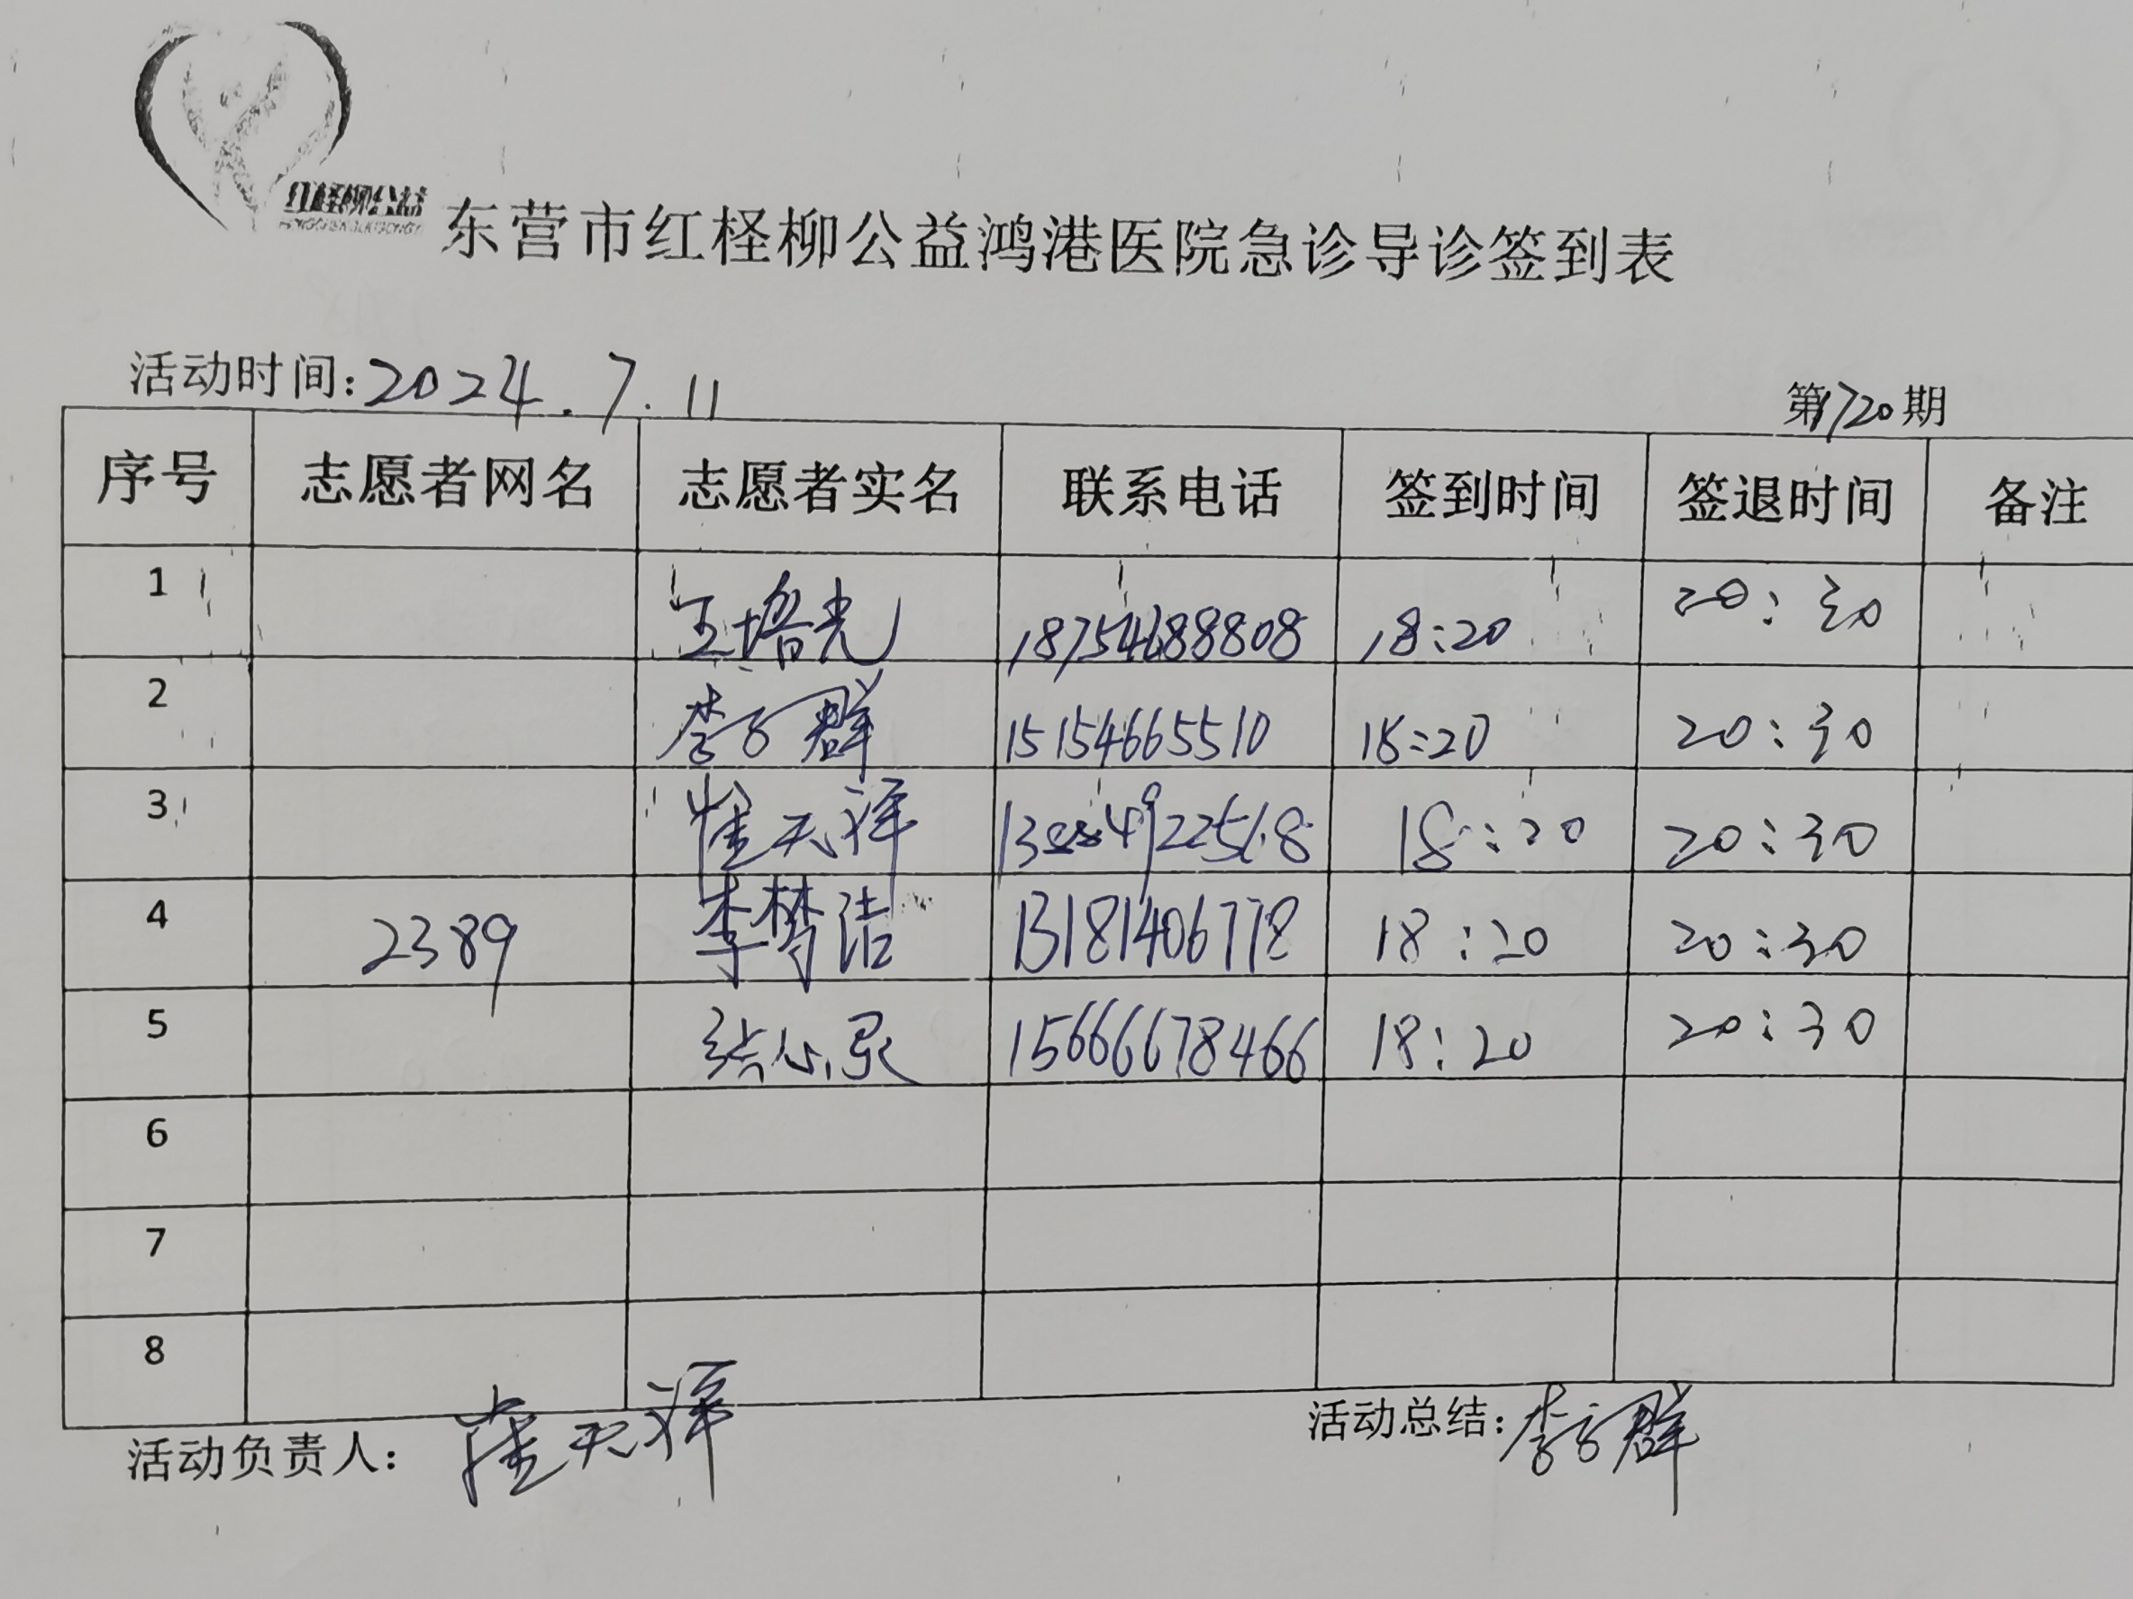 红柽柳公益
东营市红柽柳公益鸿港医院急诊导诊签到表
活动时间:2024.7.11 第1720期
序号 志愿者网名 志愿者实名 联系电话 签到时间 签退时间 备注
1 王培光 18754688808 18:20 20:30
2 李子群 15154665510 18:20 20:30
3 崔天祥 18:20 20:30
4 2389 李梦洁 13181406778 18:20 20:30
5 15666678466 18:20 20:30
6
7
8
活动负责人: 崔天祥 活动总结:李子群